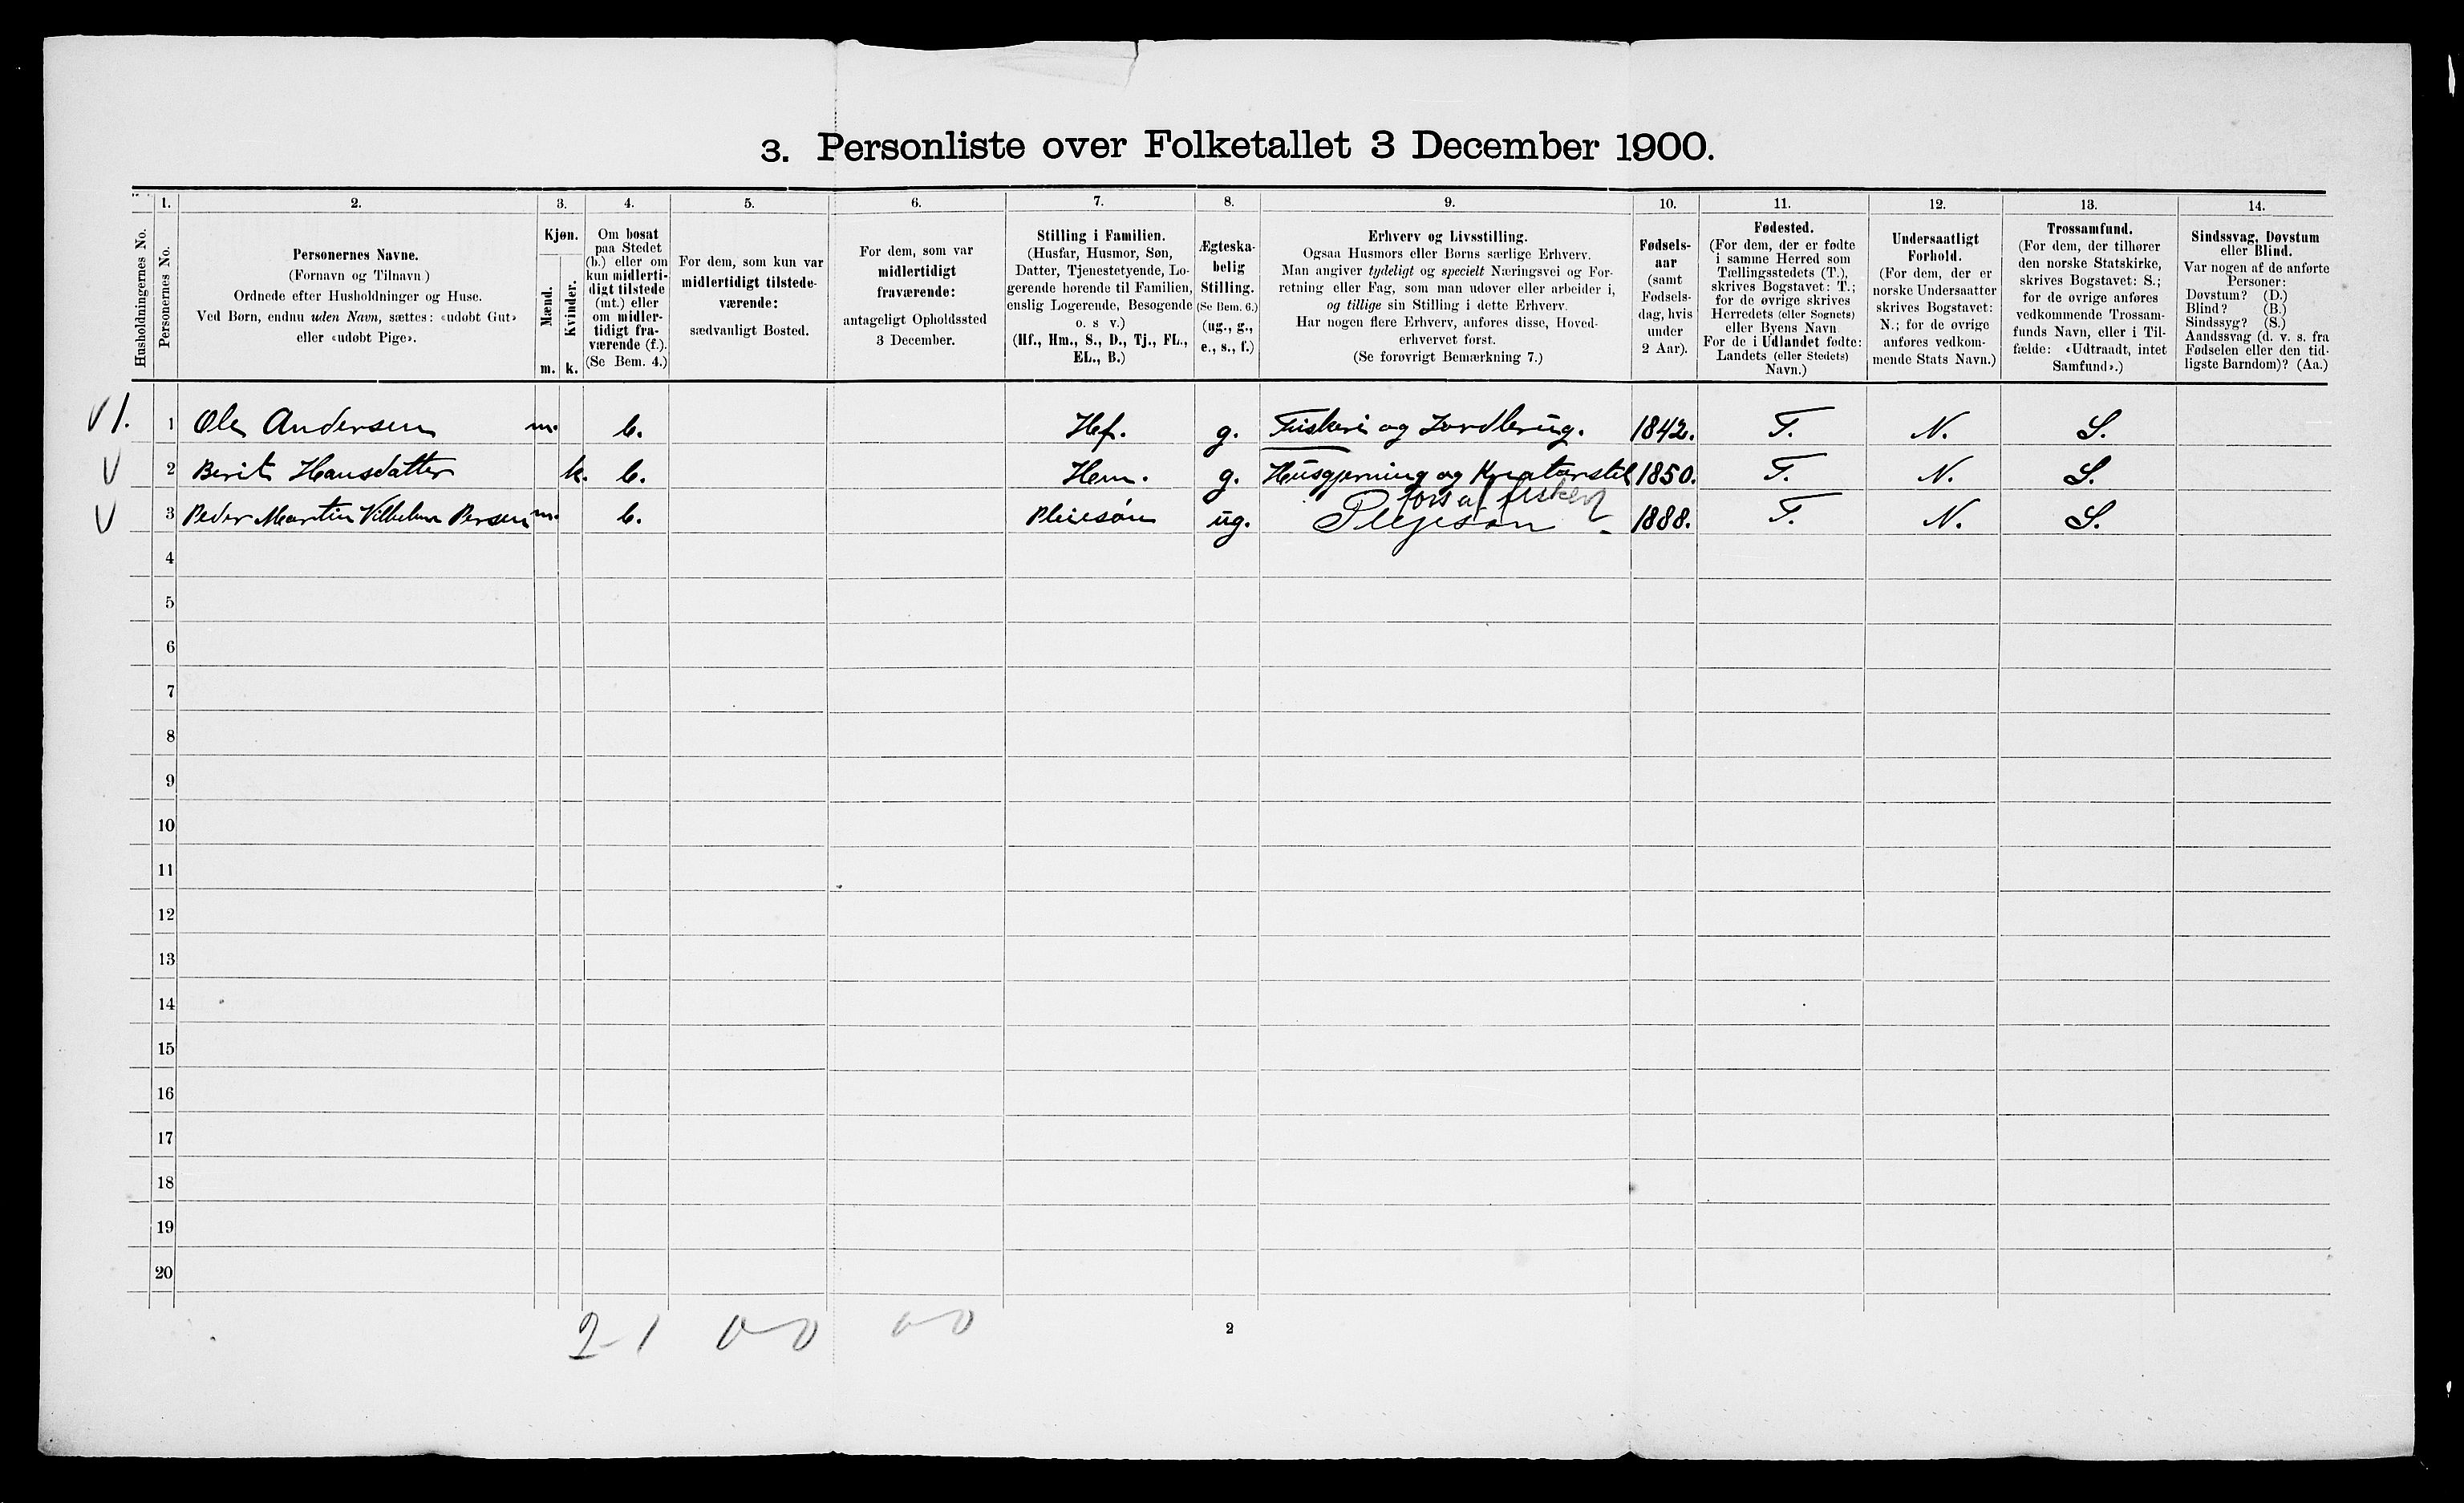 3. Personliste over Folketallet 3 December 1900.
Husholdningernes No.
1. Personernes No.
2. Personernes Navne.
(Fornavn og Tilnavn)
Ordnede efter Husholdninger og Huse.
Ved Børn, endnu uden Navn, sættes: «udøbt Gut»
eller «udøbt Pige».
3. Kjøn.
Mænd. Kvinder.
m. k.
4. Om bosat
paa Stedet
(b.) eller om
kun midlerti-
digt tilstede
(mt.) eller
om midler-
tidigt fra-
værende (f.).
(Se Bem. 4.)
5. For dem, som kun var
midlertidigt tilstede-
værende:
sædvanligt Bosted.
6. For dem, som var
midlertidigt
fraværende:
antageligt Opholdssted
3 December.
7. Stilling i Familien.
(Husfar, Husmor, Søn,
Datter, Tjenestetyende, Lo-
gerende hørende til Familien,
enslig Logerende, Besøgende
o. s v.)
(Hf., Hm., S., D., Tj., FL.,
EL., B.)
8. Ægteska-
belig
Stilling.
(Se Bem. 6.)
(ug., g.,
e., s., f.)
9. Erhverv og Livsstilling.
Ogsaa Husmors eller Børns særlige Erhverv.
Man angiver tydeligt og specielt Næringsvei og For-
retning eller Fag, som man udøver eller arbeider i,
og tillige sin Stilling i dette Erhverv.
Har nogen flere Erhverv, anføres disse, Hoved-
erhvervet først.
(Se forøvrigt Bemærkning 7.)
10. Fødsels-
aar
(samt
Fødsels-
dag, hvis
under
2 Aar).
11. Fødested.
(For dem, der er fødte
i samme Herred som
Tællingsstedets (T.),
skrives Bogstavet: T.;
for de øvrige skrives
Herredets (eller Sognets)
eller Byens Navn
For de i Udlandet fødte:
Landets (eller Stedets)
Navn.)
12. Undersaatligt
Forhold.
(For dem, der er
norske Undersaatter
skrives Bogstavet:
N.; for de øvrige
anføres vedkom-
mende Stats Navn.)
13. Trossamfund.
(For dem, der tilhører
den norske Statskirke,
skrives Bogstavet: S.;
for de øvrige anføres
vedkommende Trossam-
funds Navn, eller i Til-
fælde: «Udtraadt, intet
Samfund».)
14. Sindssvag, Døvstum
eller Blind.
Var nogen af de anførte
Personer:
Døvstum? (D.)
Blind? (B.)
Sindssyg? (S.)
Aandssvag (d. v. s. fra
Fødselen eller den tid-
ligste Barndom)? (Aa.)
1. 1 Ole Andersen m. b. Hf. g. Fiskeri og Jordbrug. 1842. T. N. S.
2 Berit Hansdatter k. b. Hm. g. Husgjerning og Kreaturstel 1850. T. N. S.
fors af fisker
3 Peder Martin Vilhelm Persen m. b. Pleiesøn ug. Plejesøn 1888. T. N. S.
4
5
6
7
8
9
10
11
12
13
14
15
16
17
18
19
20
2-1 0-0 0-0
2